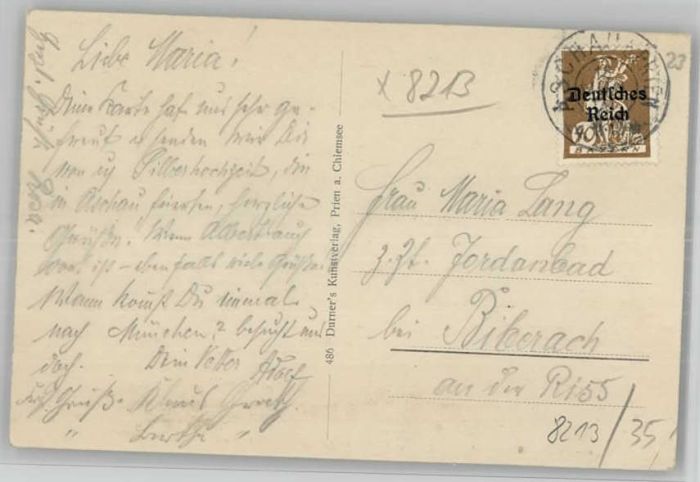 Liebe Maria!
Deine Karte hat uns sehr ge-
freut u senden wir Dir
von uns. Silberhochzeit, die
in Aschau feierten, herzliche
Grüße. Wenn Albert auch
dort ist – ebenfalls viele Grüße.
Wann kommst Du einmal
nach München? besucht uns
doch. Dein Vetter Adolf
Grüße Klaus
" Bertha "
486 Durner's Kunstverlag, Prien a. Chiemsee
x 8213
23
Deutsches
Reich
BAYERN
Frau Maria Lang
z. Zt. Jordanbad
bei Biberach
an der Riss
8213/35,